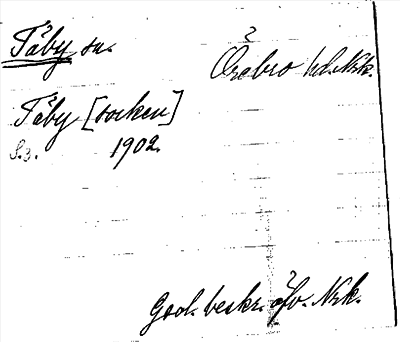 Täby sn.
Örebro hd. Nrk.
Täby [socken]
S. 3. 1902.
God. beskr. öfv. Nrk.